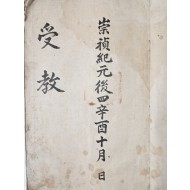 崇禎紀元後四辛酉十月 日
受教